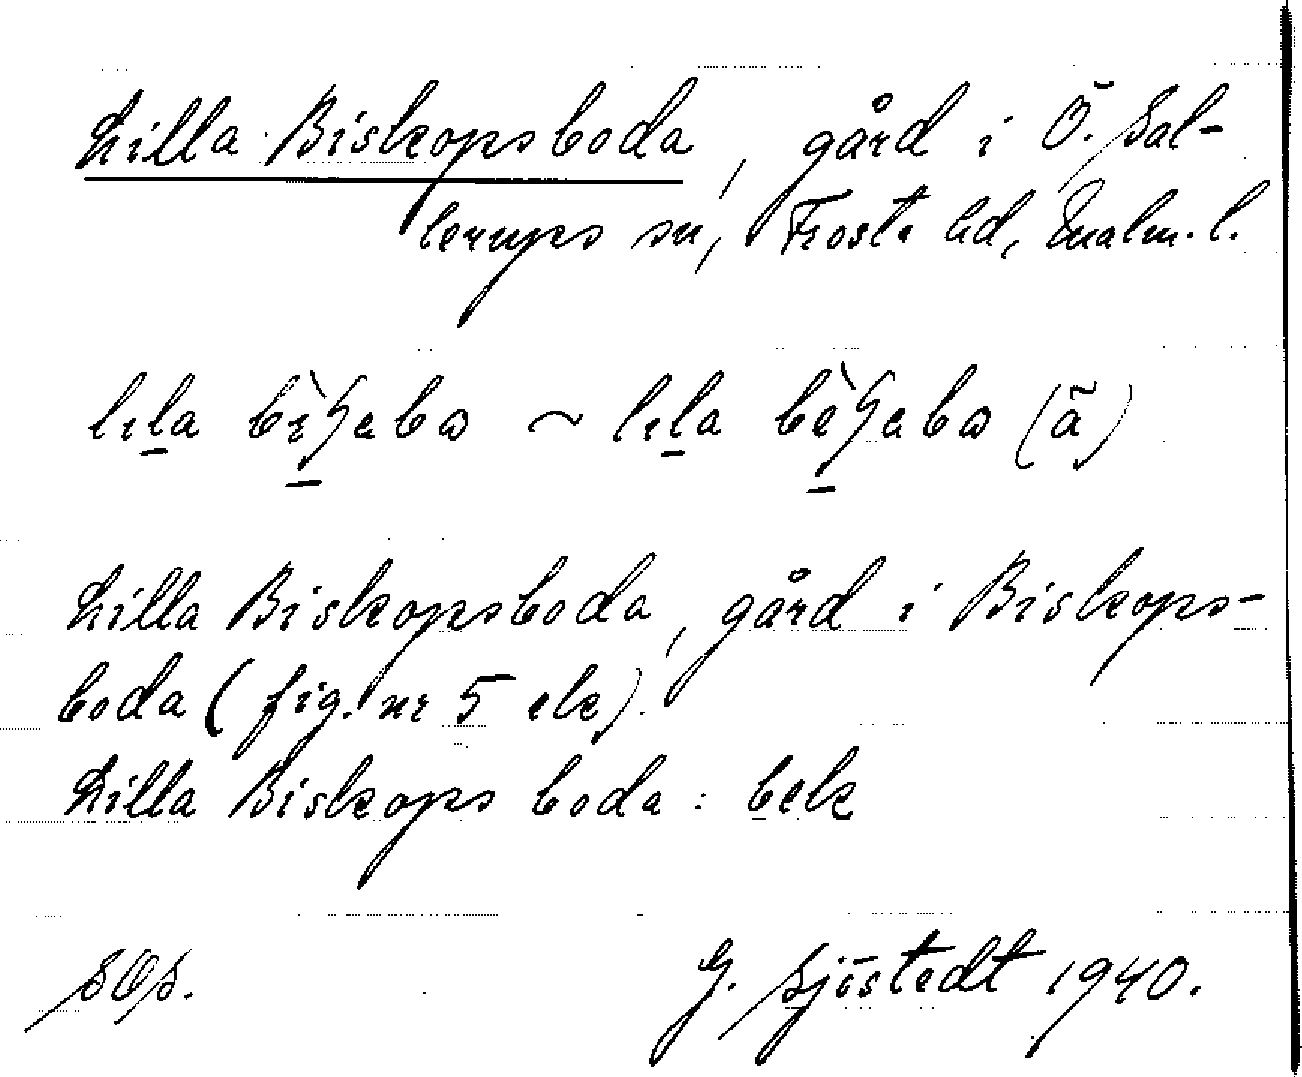 Lilla Biskopsboda, gård i Ö. Sal-
lerups sn, Frosta hd, Malm. l.
lıla bèꞔabω ~ lıla bèꞔabω (ā)
Lilla Biskopsboda, gård i Biskops-
boda (fig. nr 5 ek).
Lilla Biskops boda : bek
SOS.
G. Sjöstedt 1940.